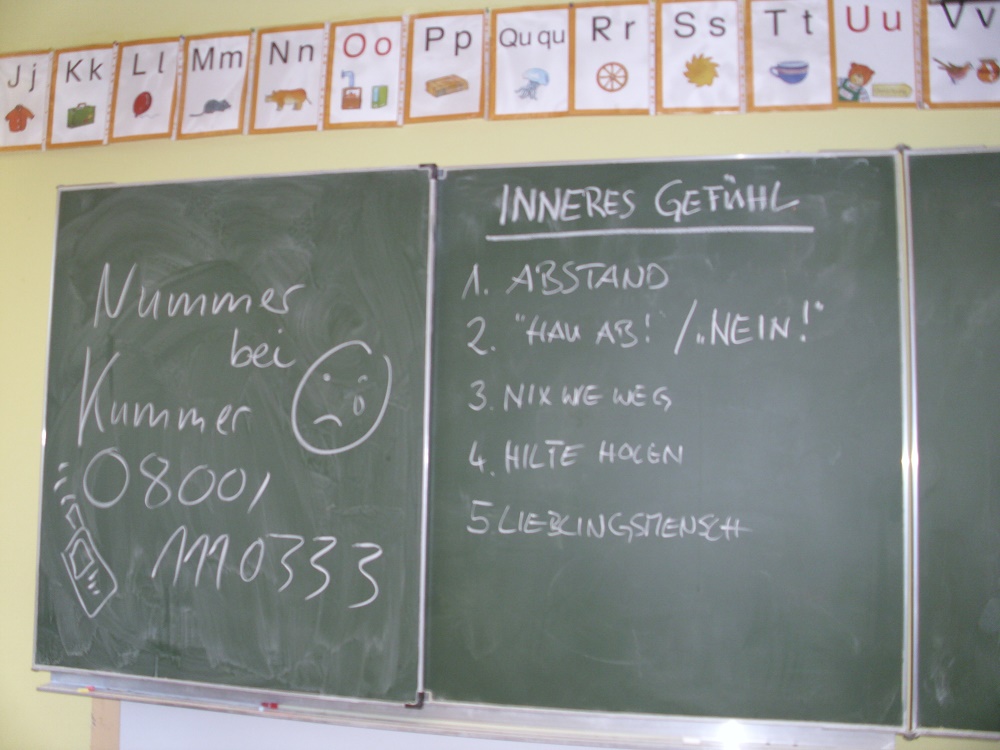 Jj
Kk
Ll
Mm
Nn
Oo
Pp
Qu qu
Rr
Ss
Tt
Uu
Vv
Nummer
bei
Kummer
0800/
1110333
INNERES GEFÜHL
1. ABSTAND
2. "HAU AB!" / „NEIN!"
3. NIX WIE WEG
4. HILFE HOLEN
5. LIEBLINGSMENSCH